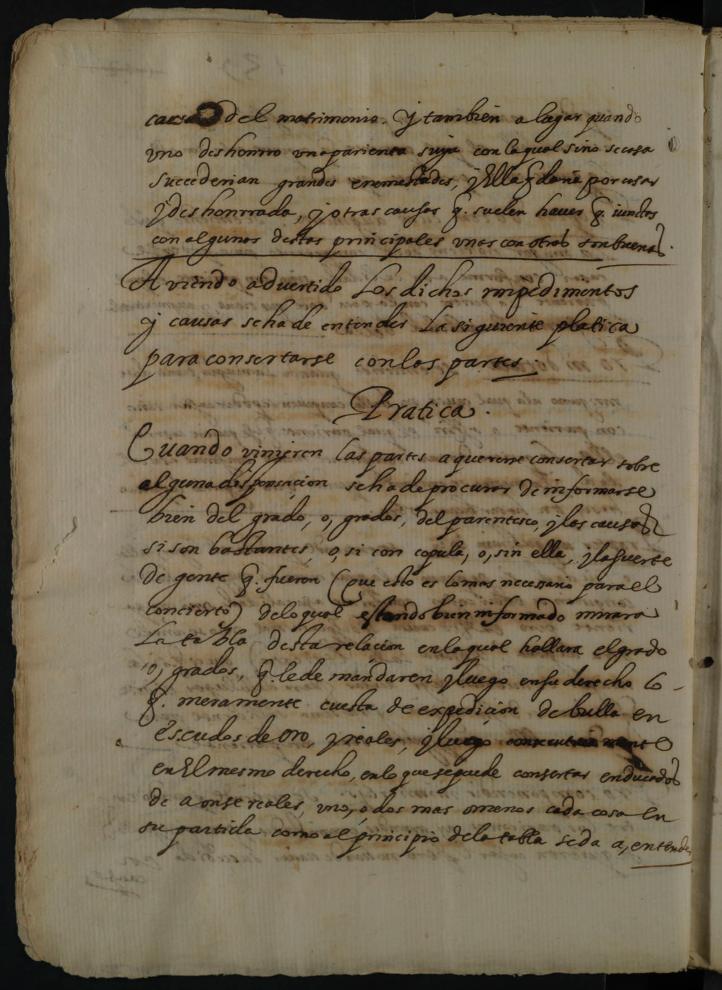 causa del matrimonio. Y tambien a lugar quando
uno deshonrro una parienta suya con la qual sino se casa
succederian grandes enemistades, y Ella q̃ daria por casar
y deshonrrada, y otras causas q̃. suelen haver q̃. iuntas
con algunas destas principales unas con otras son buenas.
Aviendo advertido Los dichos impedimentos
y causas se ha de entender La siguiente platica
para consertarse con los partes.
Pratica.
Cuando vinieren las partes a quererse consertar sobre
alguna dispensacion se ha de procurar de informarse
bien del grado, o, grados, del parentesco, y las causas
si son bastantes, o, si con copula, o, sin ella, y la suerte
de gente q̃. fueron (que esto es lo mas necessario para el
concierto) de lo qual estando bien informado mirara
La tabla desta relacion en la qual hallara el grado
o, grados, q̃. le de mandaren y luego en su derecho Lo
q̃. meramente cuesta de expedicion de bulla en
Escudos de oro, y reales, y luego consecutivamente
en El mesmo derecho, en lo que se puede consertar en ducados
de a onse reales, uno, o dos mas o menos cada cosa En
su partida como al principio de la tabla se da a, entender